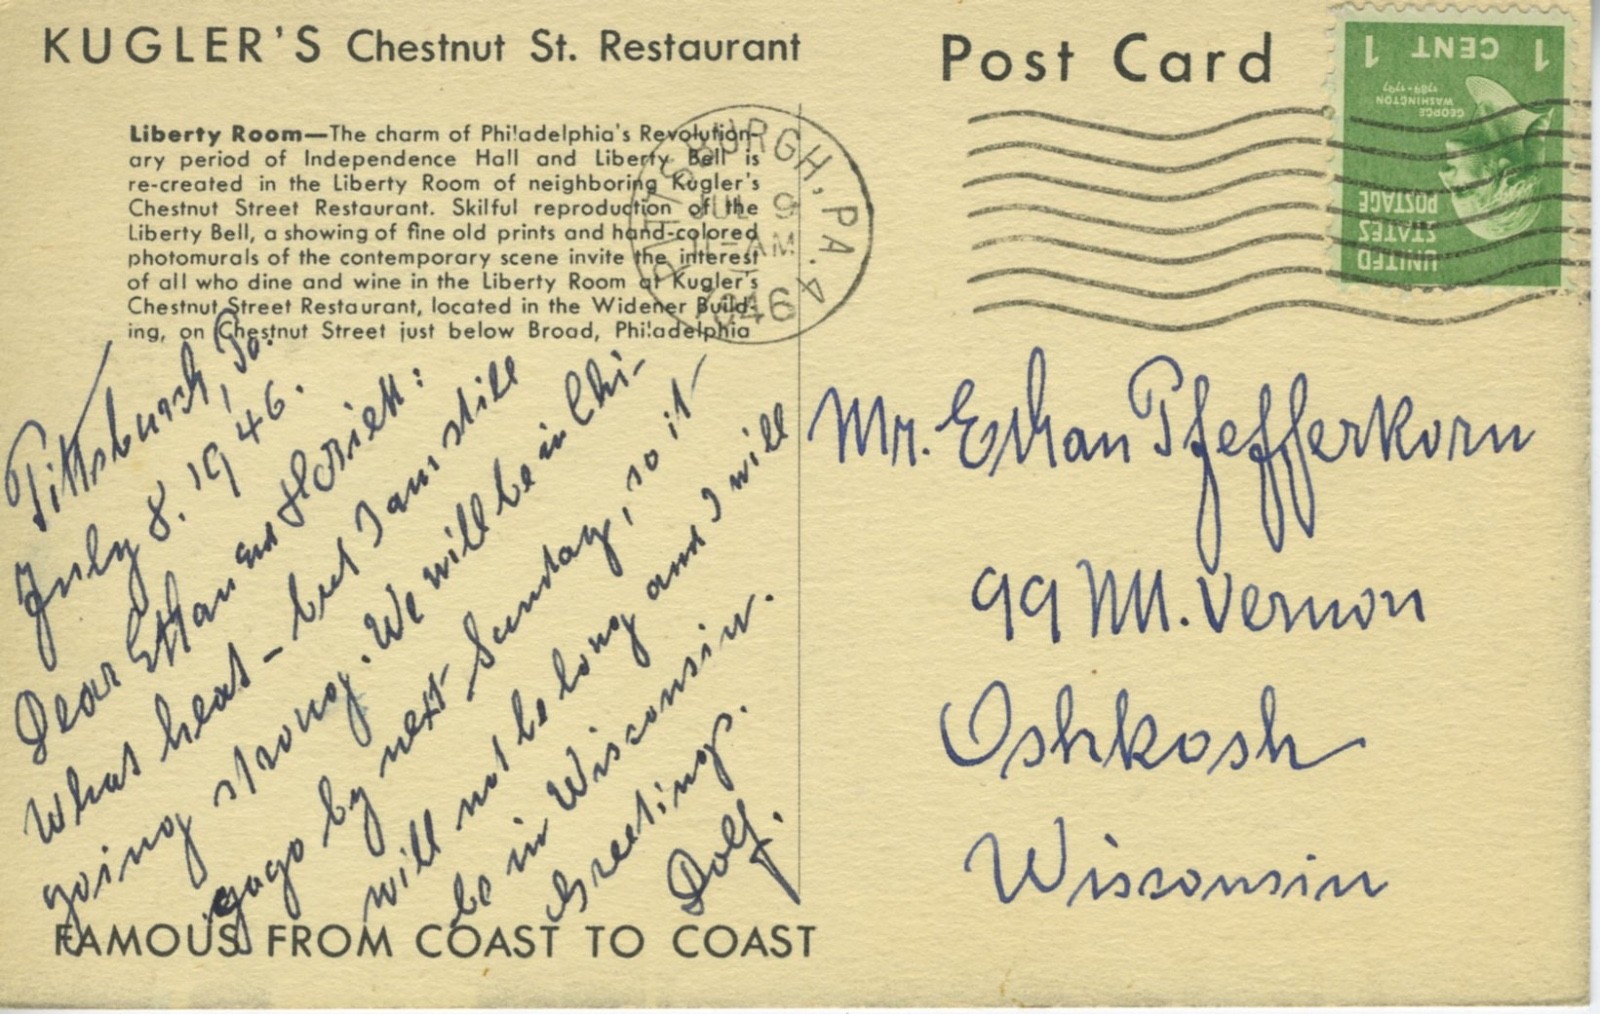 KUGLER'S Chestnut St. Restaurant
Liberty Room—The charm of Philadelphia's Revolution-
ary period of Independence Hall and Liberty Bell is
re-created in the Liberty Room of neighboring Kugler's
Chestnut Street Restaurant. Skilful reproduction of the
Liberty Bell, a showing of fine old prints and hand-colored
photomurals of the contemporary scene invite the interest
of all who dine and wine in the Liberty Room at Kugler's
Chestnut Street Restaurant, located in the Widener Build-
ing, on Chestnut Street just below Broad, Philadelphia
Pittsburgh, Pa.
July 8. 1946.
Dear Ethan and Horiett:
What heat - but I am still
going strong. We will be in Chi-
gago by next Sunday, so it
will not be long and I will
be in Wisconsin.
Greetings.
Dolf.
FAMOUS FROM COAST TO COAST
Post Card
PITTSBURGH, PA. 4
JUL 9
11-AM
1946
1 CENT 1
GEORGE
WASHINGTON
1789-1797
UNITED
STATES
POSTAGE
Mr. Ethan Pfefferkorn
99 Mt. Vernon
Oshkosh
Wisconsin